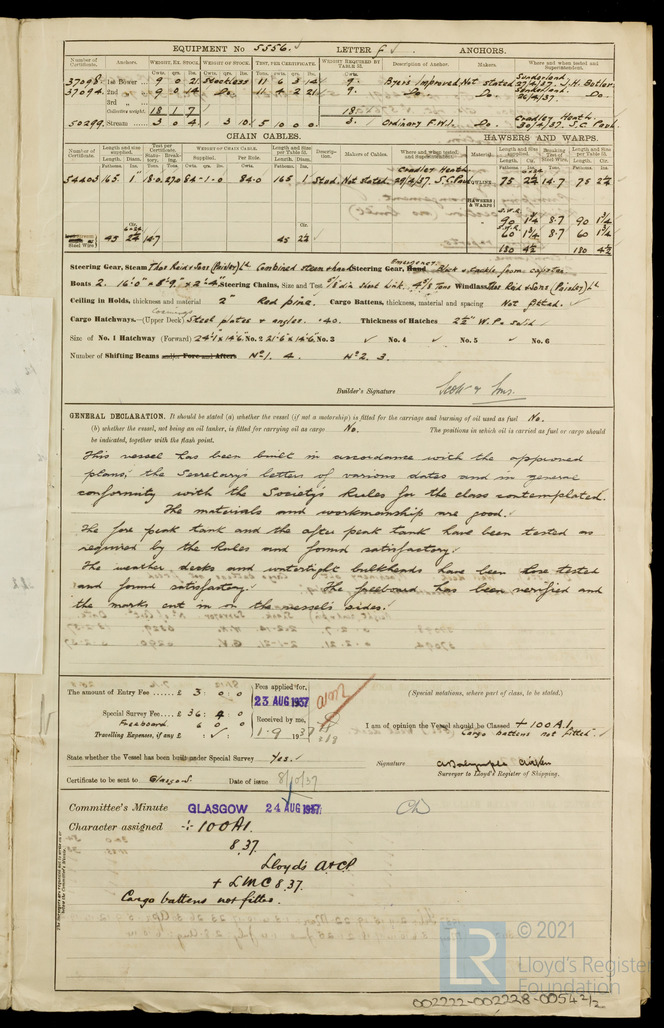 EQUIPMENT No 5556. LETTER f ANCHORS.
Number of Certificate. Anchors. WEIGHT, EX. STOCK. WEIGHT OF STOCK. TEST, PER CERTIFICATE. WEIGHT REQUIRED BY TABLE 53. Description of Anchor. Makers. Where and when tested and Superintendent.
Cwts. qrs. lbs. Cwts. qrs. lbs. Tons. cwts. qrs. lbs. Cwts.
37098. 1st Bower 9 0 21 Stockless 11 6 3 14 9. Byers Improved Not stated Sunderland 27/4/37. J.H. Butler.
37094. 2nd 9 0 14 Do. 11 4 2 21 9. Do. Do. Sunderland 26/4/37. Do.
3rd
Collective weight. 18 1 7 18
50299 Stream 3 0 4 3 10 5 10 0 0 3. Ordinary F.W.I. Do. Cradley Heath 30/4/37. S.C. Paul
CHAIN CABLES. HAWSERS AND WARPS.
Number of Certificate. Length and size supplied. Test per Certificate. WEIGHT OF CHAIN CABLE. Length and size per Table 53. Description. Makers of Cables. Where and when tested and Superintendent. Material. Length and Size supplied. Breaking Test of Steel Wire. Length and size per Table 53.
Length. Diam. Supplied. Per Rule. Length. Diam.
54403 165 1" 18.0 27.0 82-1-0 84.0 165 1" Stud. Not stated Cradley Heath 29/4/37. S.C. Paul TOWLINE 75 2¼ 14.7 75 2¼
HAWSERS & WARPS
90 1¾ 8.7 90 1¾
60 1¾ 8.7 60 1¾
180 4½ 180 4½
Steel Wire 45 2¼ 14.7 45 2¼
Steering Gear, Steam Thos Reid & Sons (Paisley) Ld Combined steam & hand Steering Gear, Emergency Hand Block & tackle from capstan
Boats 2. 16'0" x 5'9" x 2'4" Steering Chains, Size and Test 5/8 dia short link. 4 7/8 Tons Windlass Thos Reid & Sons (Paisley) Ld
Ceiling in Holds, thickness and material 2" Red pine. Cargo Battens, thickness, material and spacing Not fitted.
Cargo Hatchways. Coamings (Upper Deck) Steel plates & angles. .40. Thickness of Hatches 2½" W.P. solid
Size of No. 1 Hatchway (Forward) 24'1 x 14'6. No. 2 21'6 x 14'6. No. 3 No. 4 No. 5 No. 6
Number of Shifting Beams and/or Fore and Afters No 1. 4. No 2. 3.
Builder's Signature Scott & Sons.
GENERAL DECLARATION. It should be stated (a) whether the vessel (if not a motorship) is fitted for the carriage and burning of oil used as fuel No.
(b) whether the vessel, not being an oil tanker, is fitted for carrying oil as cargo No. The positions in which oil is carried as fuel or cargo should
be indicated, together with the flash point.
This vessel has been built in accordance with the approved
plans, the Secretary's letters of various dates and in general
conformity with the Society's Rules for the class contemplated.
The materials and workmanship are good.
The fore peak tank and the after peak tank have been tested as
required by the Rules and found satisfactory.
The weather decks and watertight bulkheads have been hose tested
and found satisfactory. The freeboard has been verified and
the marks cut in on the vessel's sides.
The amount of Entry Fee £ 3 : 0 : 0
Special Survey Fee £ 36 : 4 : 0
Freeboard 6 0 0
Travelling Expenses, if any £
Fees applied for,
23 AUG 1937
Received by me,
1·9 1937
(Special notations, where part of class, to be stated.)
I am of opinion the Vessel should be Classed + 100A.1.
Cargo battens not fitted.
State whether the Vessel has been built under Special Survey Yes.
Signature
Surveyor to Lloyd's Register of Shipping.
Certificate to be sent to Glasgow. Date of issue 8/10/37
Committee's Minute GLASGOW 24 AUG 1937
Character assigned + 100A1.
8.37
Lloyd's A&CP.
+ LMC 8.37.
Cargo battens not fitted.
© 2021
LR
Lloyd's Register
Foundation
002222-002228-0054 2/2